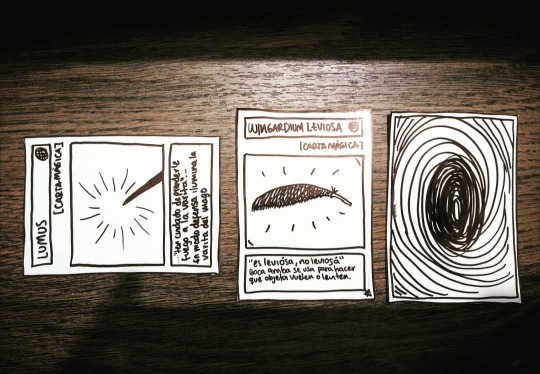 LUMUS
[CARTA MÁGICA]
"Ten cuidado de prenderle
fuego a la varita"...
en modo defensa ilumina la
varita del mago
WINGARDIUM LEVIOSA
[CARTA MÁGICA]
"es leviósa, no leviosá"
Boca arriba se usa para hacer
que objetos vuelen o leviten.